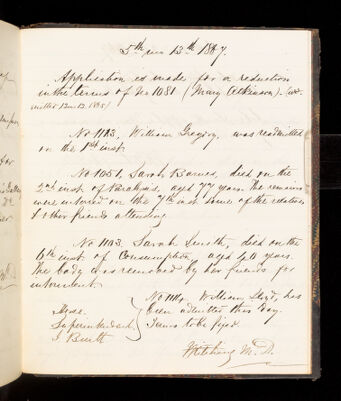 5th mo 13th 1867.
Application is made for a reduction
in the terms of No 1081 (Mary Atkinson). (see
No 1113, William Gregory, was readmitted
on the 1st inst.
No 1051, Sarah Barnes, died on the
2nd inst. of Paralysis, aged 77 years. The remains
were interred on the 7th inst. some of the relatives
& other friends attending
No 1103. Sarah Smith, died on the
10th inst. of Consumption, aged 40 years.
The body was removed by her friends for
interment.
No William Lloyd, has
been admitted this day.
Terms to be fixed.
Superintendent
J. M.D.